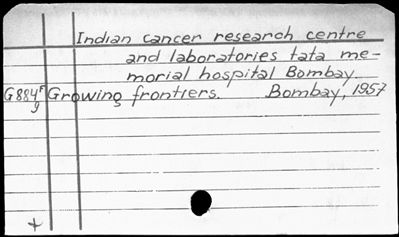 Indian cancer research centre
and laboratories tata me-
morial hospital Bombay.
G884r Growing frontiers. Bombay, 1957
g
+